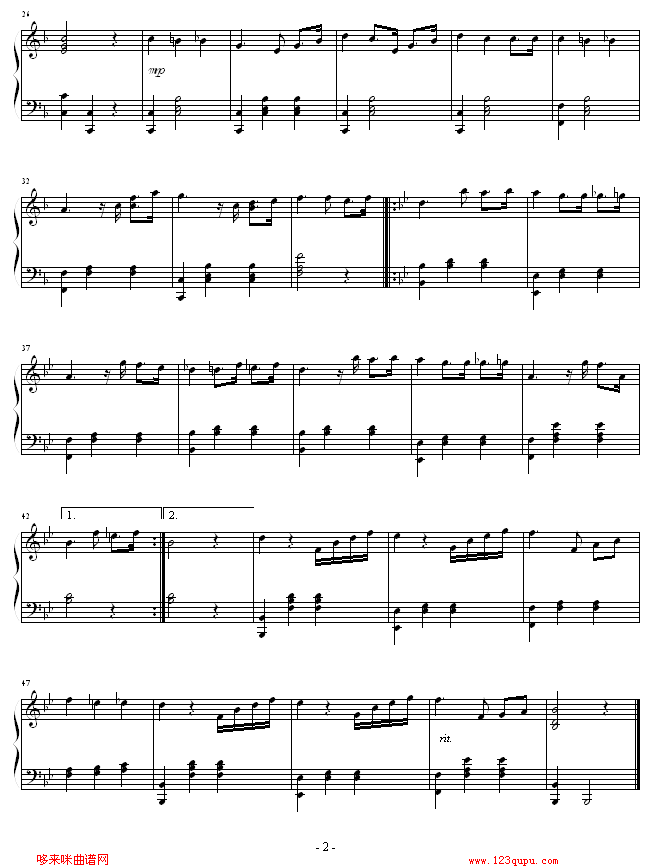 26
mp
32
37
42
1.
2.
47
rit.
- 2 -
哆来咪曲谱网
www.123qupu.com